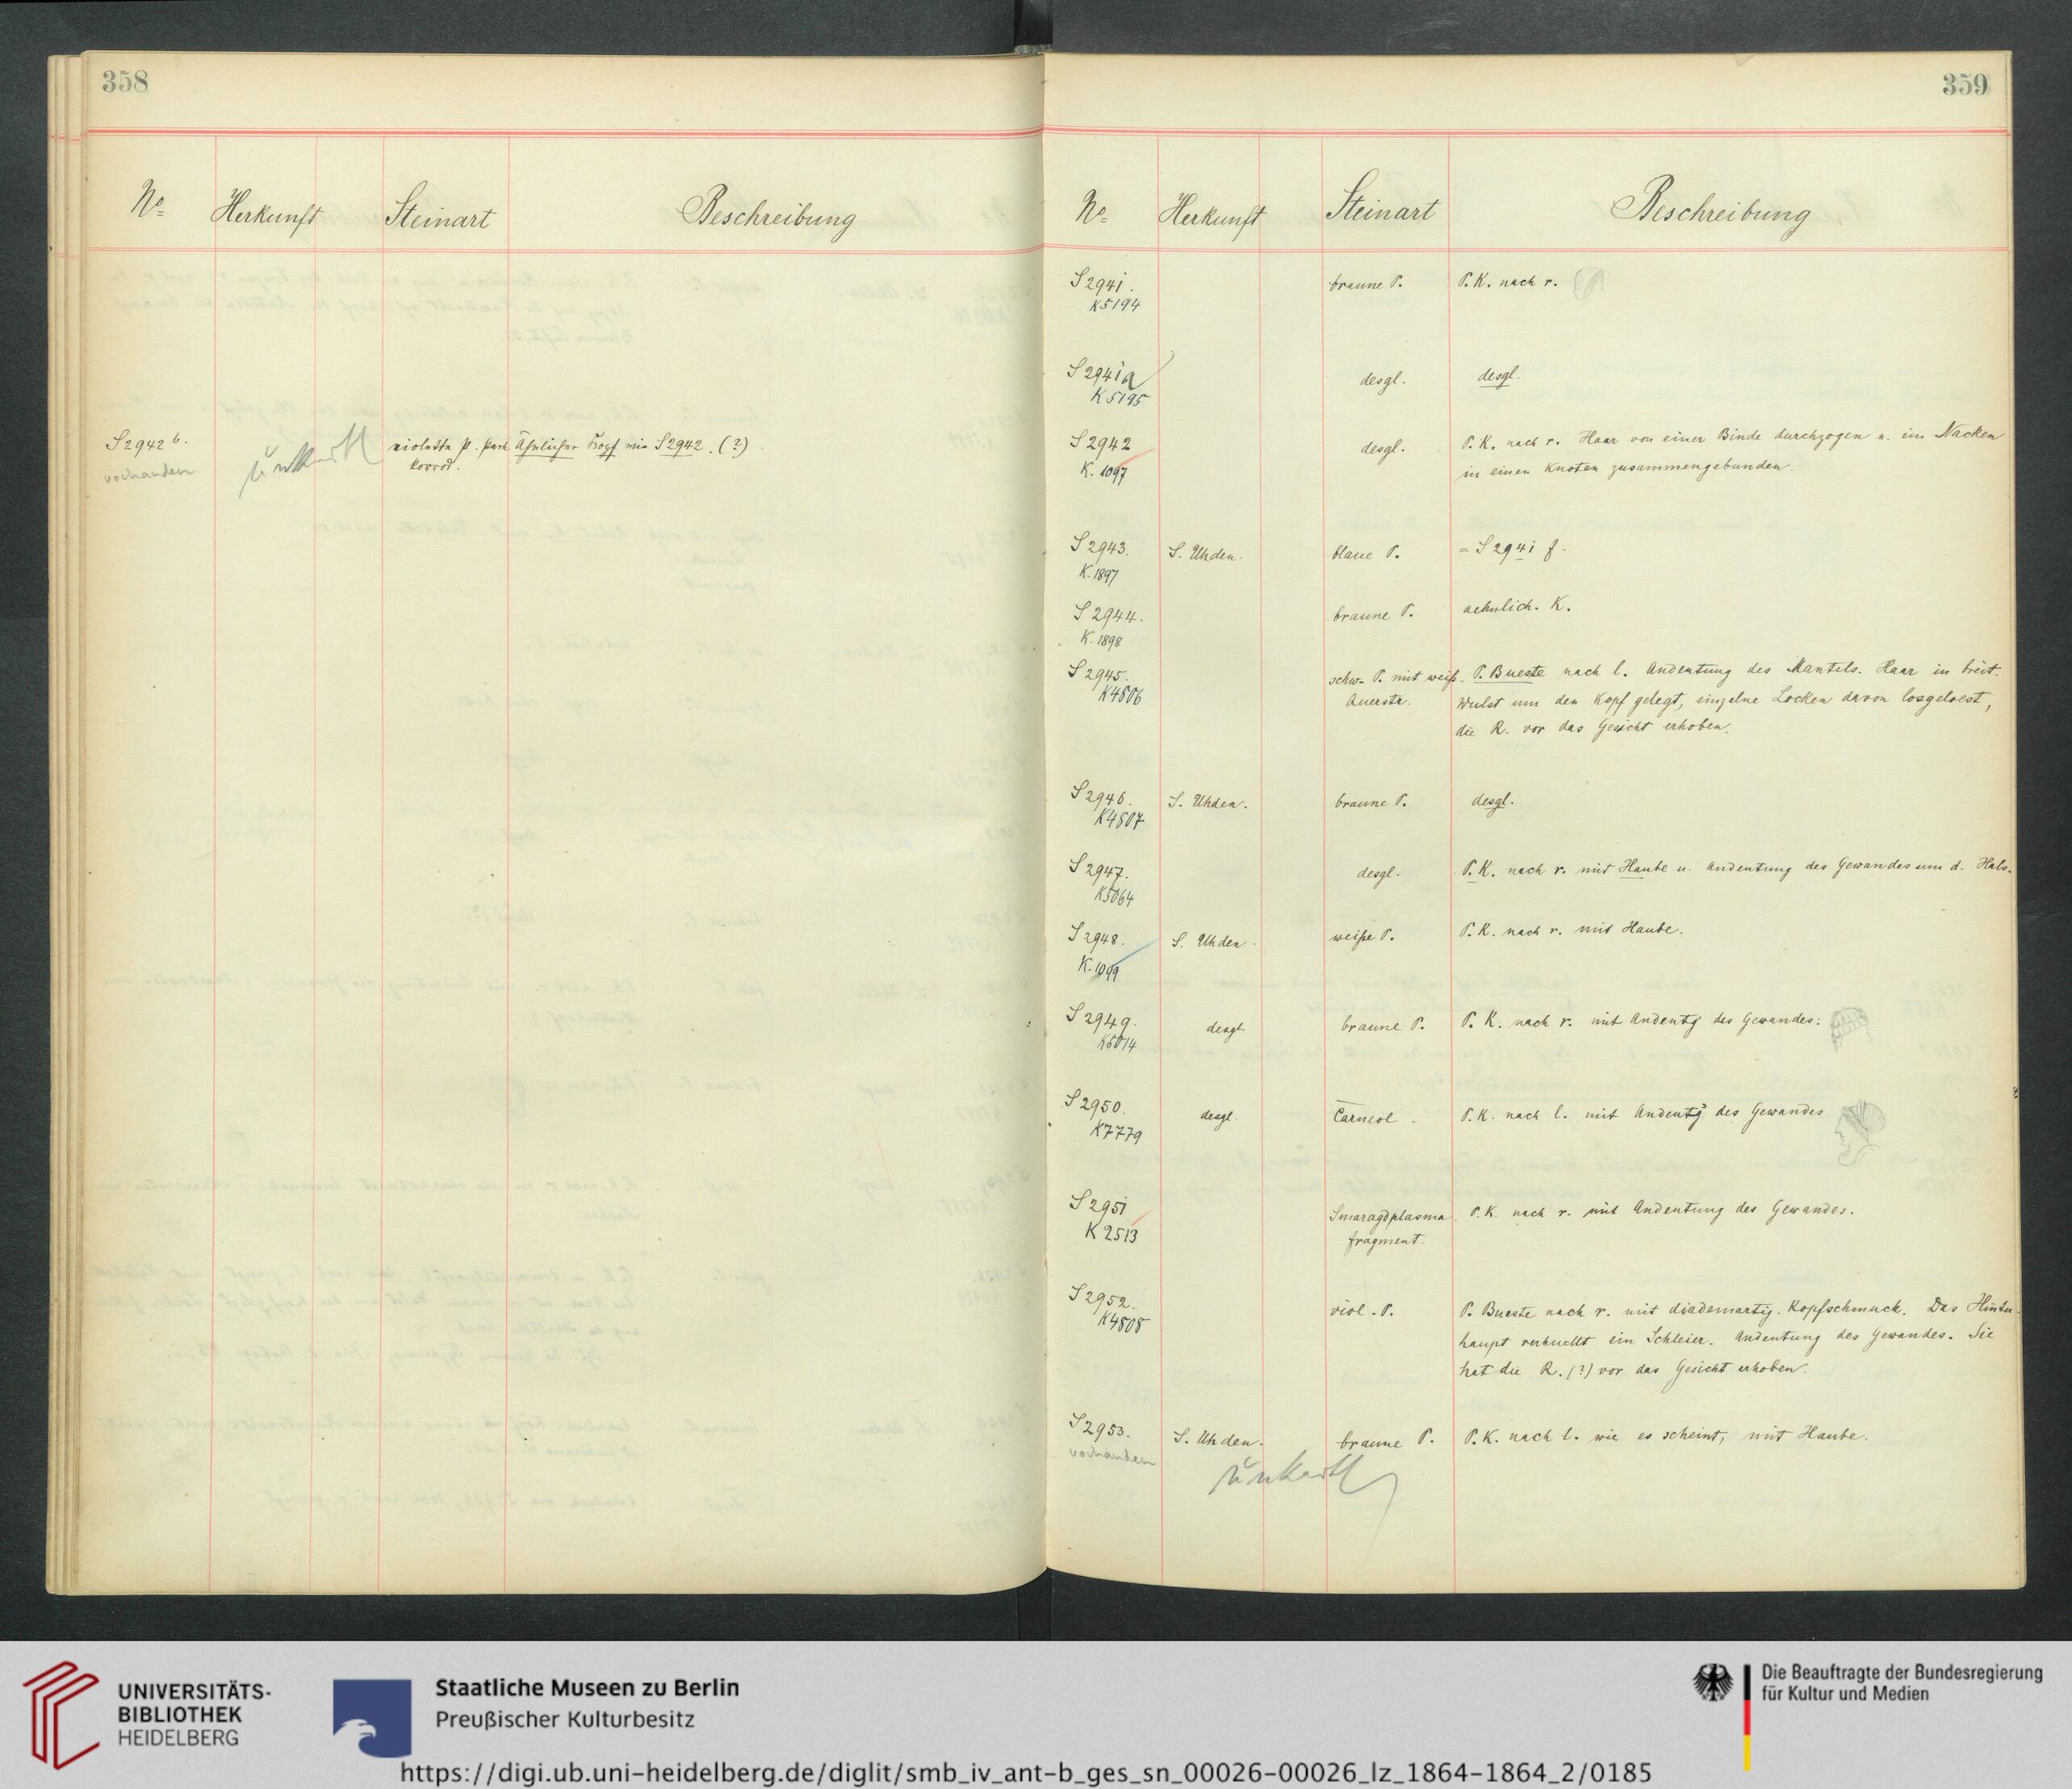 358
No Herkunft Steinart Beschreibung
S 2942 b. violette P. stark Ähnlicher Kopf wie S 2942. (?)
korrod.
vorhanden
359
No Herkunft Steinart Beschreibung
S 2941. braune P. P. K. nach r.
K5194
S 2941a desgl. desgl.
K5195
S 2942 desgl. P. K. nach r. Haar von einer Binde durchzogen u. im Nacken
K. 1097 in einen Knoten zusammengebunden.
S 2943. S. Uhden. blaue P. = S 2941 f.
K. 1897
S 2944. braune P. aehnlich. K.
K. 1898
S 2945. schw. P. mit weiß. P. Bueste nach l. Andeutung des Mantels. Haar in breit.
K4806 Querstr. Wulst um den Kopf gelegt, einzelne Locken davon losgeloest,
die R. vor das Gesicht erhoben.
S 2946. S. Uhden. braune P. desgl.
K4807
S 2947. desgl. P. K. nach r. mit Haube u. Andeutung des Gewandes um d. Hals.
K5064
S 2948. S. Uhden. weiße P. P. K. nach r. mit Haube.
K. 1099
S 2949. desgl. braune P. P. K. nach r. mit Andeutg des Gewandes.
K5014
S 2950. desgl. Carneol. P. K. nach l. mit Andeutg des Gewandes
K7779
S 2951 Smaragdplasma P. K. nach r. mit Andeutung des Gewandes.
K 2513 fragment.
S 2952. viol. P. P. Bueste nach r. mit diademartig. Kopfschmuck. Das Hinter-
K4808 haupt verhuellt ein Schleier. Andeutung des Gewandes. Sie
hat die R. (?) vor das Gesicht erhoben.
S 2953. S. Uhden. braune P. P. K. nach l. wie es scheint, mit Haube.
vorhanden
UNIVERSITÄTS-
BIBLIOTHEK
HEIDELBERG
Staatliche Museen zu Berlin
Preußischer Kulturbesitz
Die Beauftragte der Bundesregierung
für Kultur und Medien
https://digi.ub.uni-heidelberg.de/diglit/smb_iv_ant-b_ges_sn_00026-00026_lz_1864-1864_2/0185